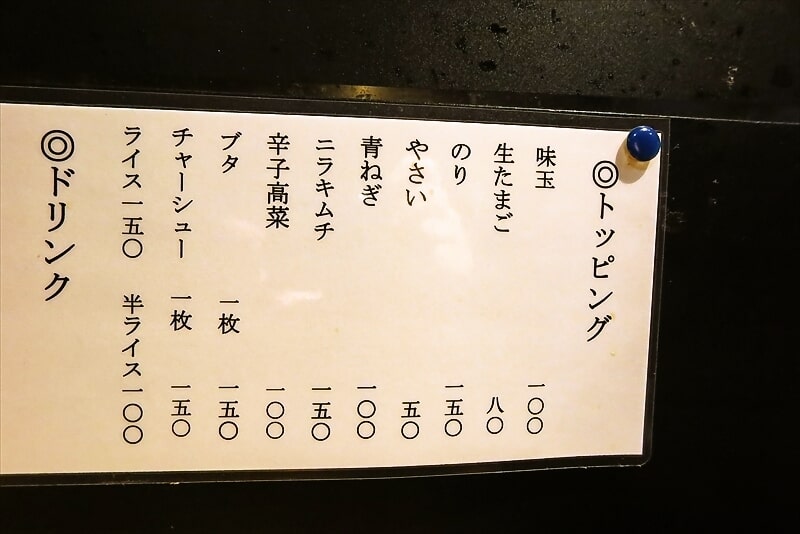 ◎トッピング
味玉 一〇〇
生たまご 八〇
のり 一五〇
やさい 五〇
青ねぎ 一〇〇
ニラキムチ 一五〇
辛子高菜 一〇〇
ブタ 一枚 一五〇
チャーシュー 一枚 一五〇
ライス一五〇 半ライス一〇〇
◎ドリンク